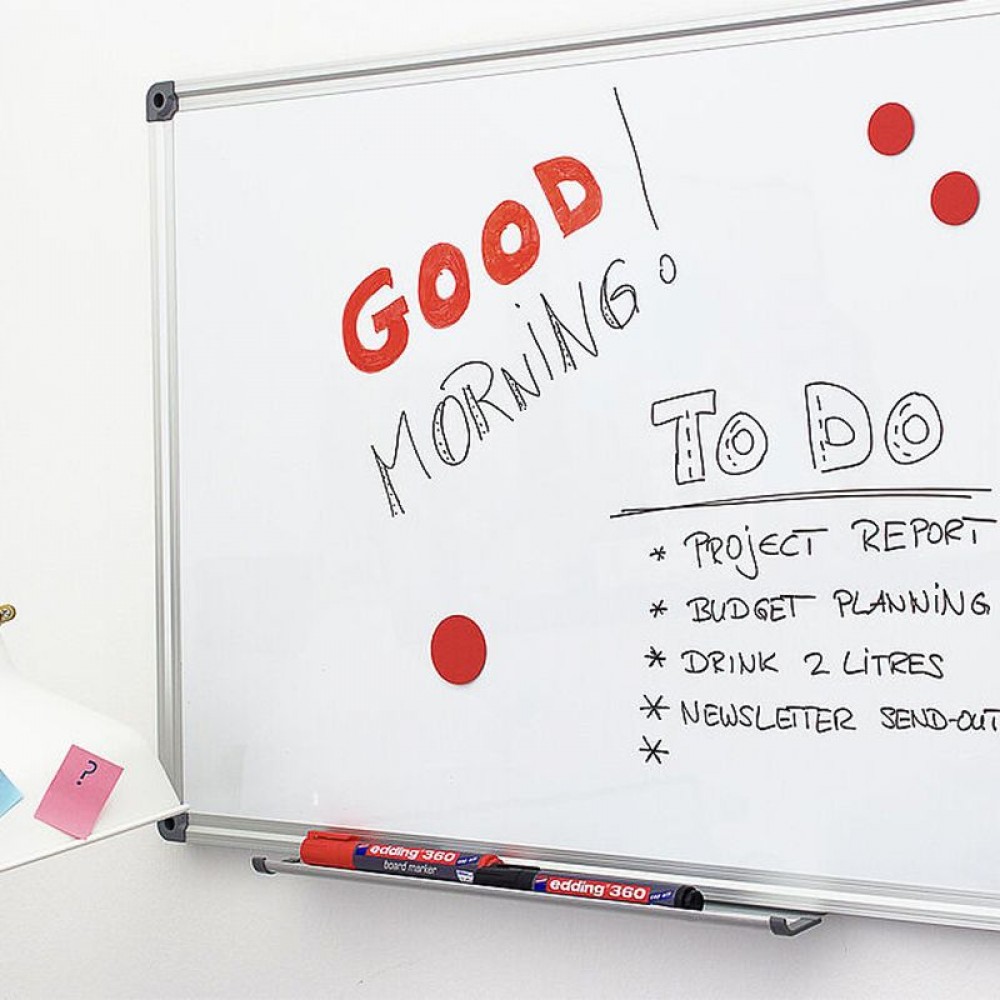 GOOD!
MORNING
TO DO
* PROJECT REPORT
* BUDGET PLANNING
* DRINK 2 LITRES
* NEWSLETTER SEND-OUT
*
?
edding 360
board marker
edding 360